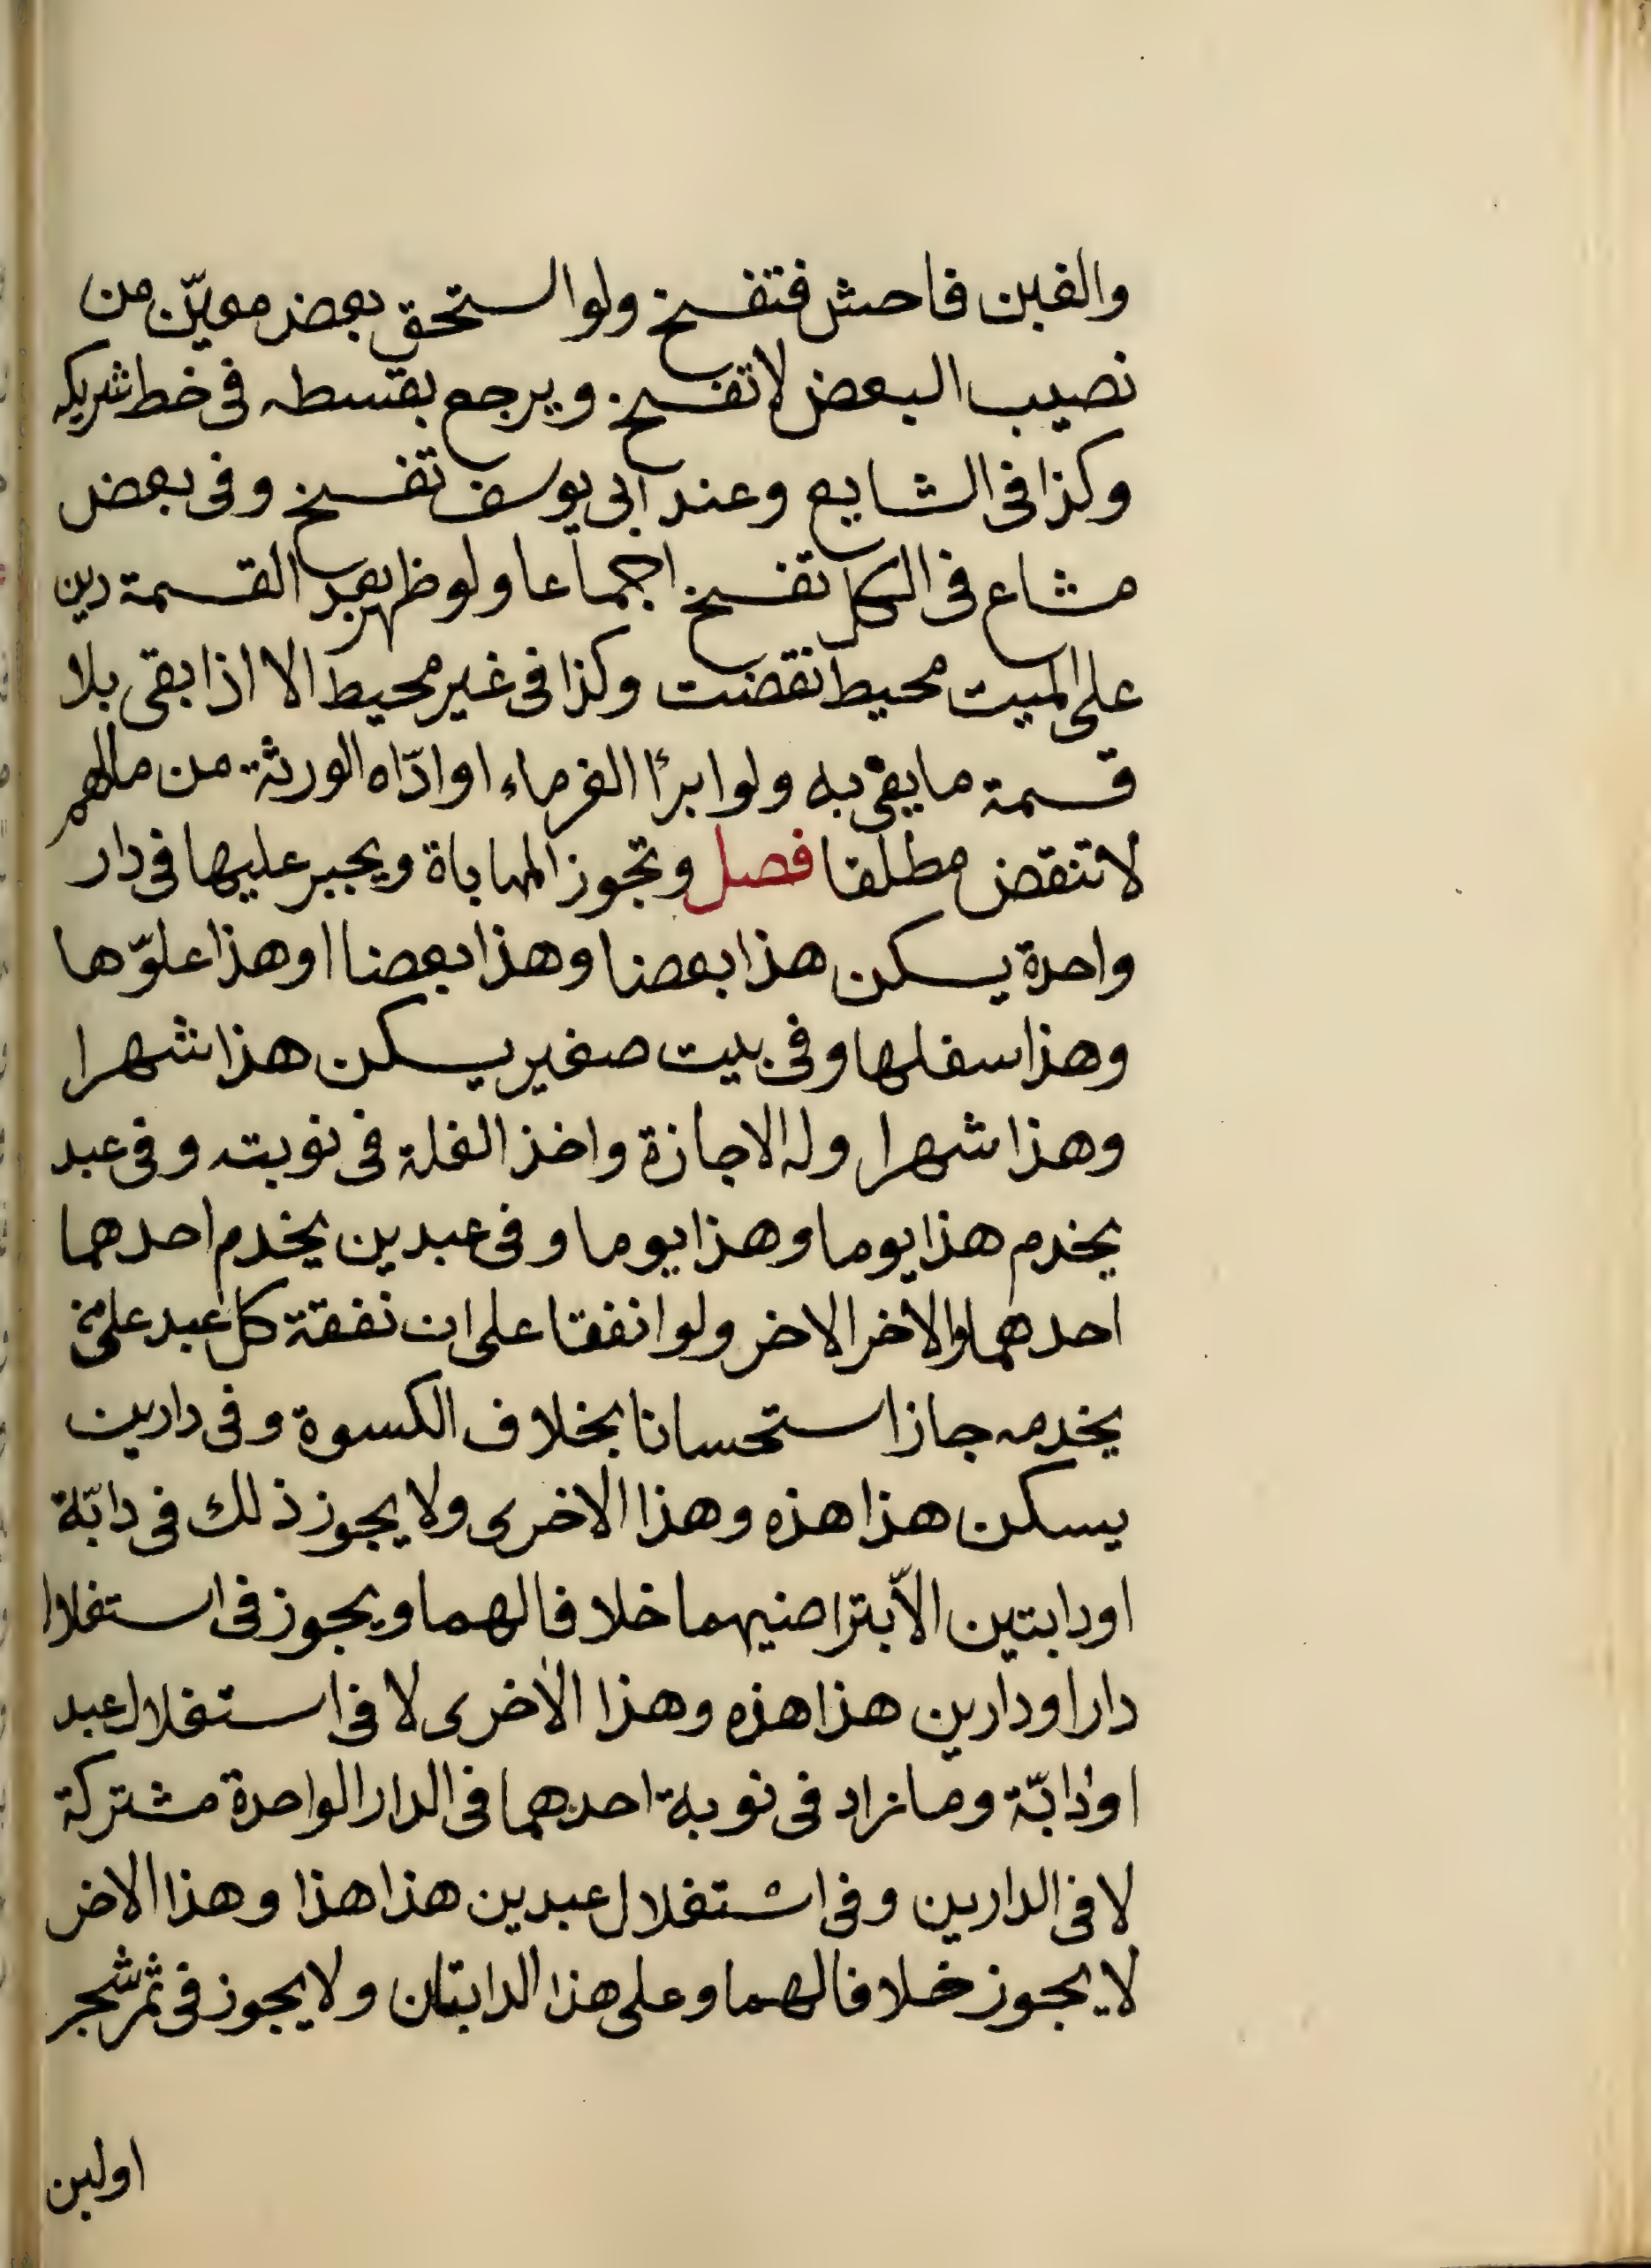 والغبن فاحش فتفسخ ولو استحق بعض معيّن من
نصيب البعض لا تفسخ ويرجع بقسطه فى خط شريكه
وكذا فى الشايع وعند ابى يوسف تفسخ وفى بعض
مشاع فى الكل تفسخ اجماعا ولو ظهر بعد القسمة دين
على الميت محيط نقضت وكذا فى غير محيط الا اذا بقى بلا
قسمة ما يفى به ولو ابرأ الغرماء او ادّاه الورثة من مالهم
لا تنقض مطلقا فصل وتجوز المهاباة ويجبر عليها فى دار
واحدة يسكن هذا بعضا وهذا بعضا او هذا علوّها
وهذا سفلها وفى بيت صغير يسكن هذا شهرا
وهذا شهرا وله الاجازة واخذ الغلة فى نوبته وفى عبد
يخدم هذا يوما وهذا يوما وفى عبدين يخدم احدهما
احدهما والآخر الاخر ولو انفقا على ان نفقة كل عبد على من
يخدمه جاز استحسانا بخلاف الكسوة وفى دارين
يسكن هذا هذه وهذا الاخرى ولا يجوز ذلك فى دابّة
او دابتين الاّ بتراضيهما خلافا لهما ويجوز فى استغلال
دار او دارين هذا هذه وهذا الاخرى لا فى استغلال عبد
او دابّة وما زاد فى نوبة احدهما فى الدار الواحدة مشتركة
لا فى الدارين وفى اشتغلال عبدين هذا هذا وهذا الاخر
لا يجوز خلافا لهما وعلى هذا الدابتان ولا يجوز فى ثمر شجر
اولبن